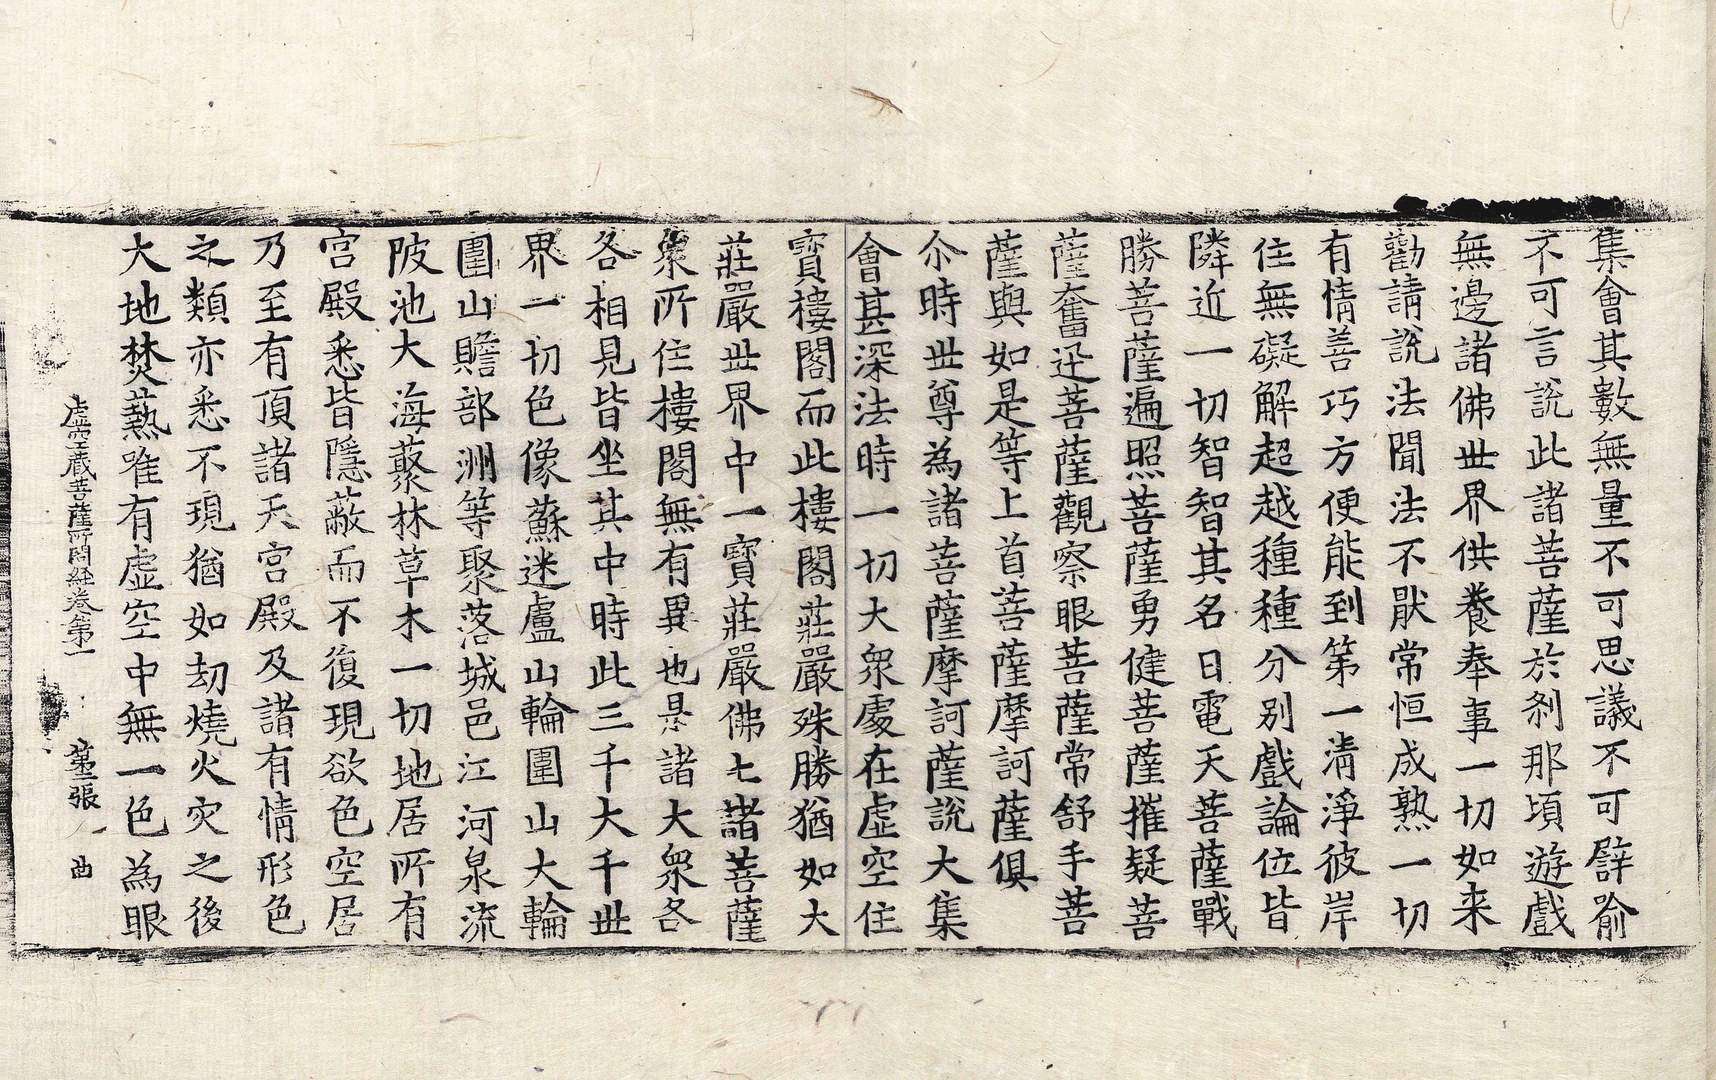 集會其數無量不可思議不可譬喻
不可言說此諸菩薩於剎那頃遊戲
無邊諸佛世界供養奉事一切如来
勸請說法聞法不猒常恒成熟一切
有情善巧方便能到第一清淨彼岸
住無礙解超越種種分別戲論位皆
隣近一切智智其名曰電天菩薩戰
勝菩薩遍照菩薩勇健菩薩摧疑菩
薩奮迅菩薩觀察眼菩薩常舒手菩
薩與如是等上首菩薩摩訶薩俱
尒時世尊為諸菩薩摩訶薩說大集
會甚深法時一切大衆處在虛空住
寶樓閣而此樓閣莊嚴殊勝猶如大
莊嚴世界中一寶莊嚴佛土諸菩薩
衆所住樓閣無有異也是諸大衆各
各相見皆坐其中時此三千大千世
界一切色像蘇迷盧山輪圍山大輪
圍山贍部洲等聚落城邑江河泉流
陂池大海藂林草木一切地居所有
宮殿悉皆隱蔽而不復現欲色空居
乃至有頂諸天宮殿及諸有情形色
之類亦悉不現猶如劫燒火灾之後
大地焚爇唯有虛空中無一色為眼
虛空藏菩薩所問經卷第一 第二張 曲